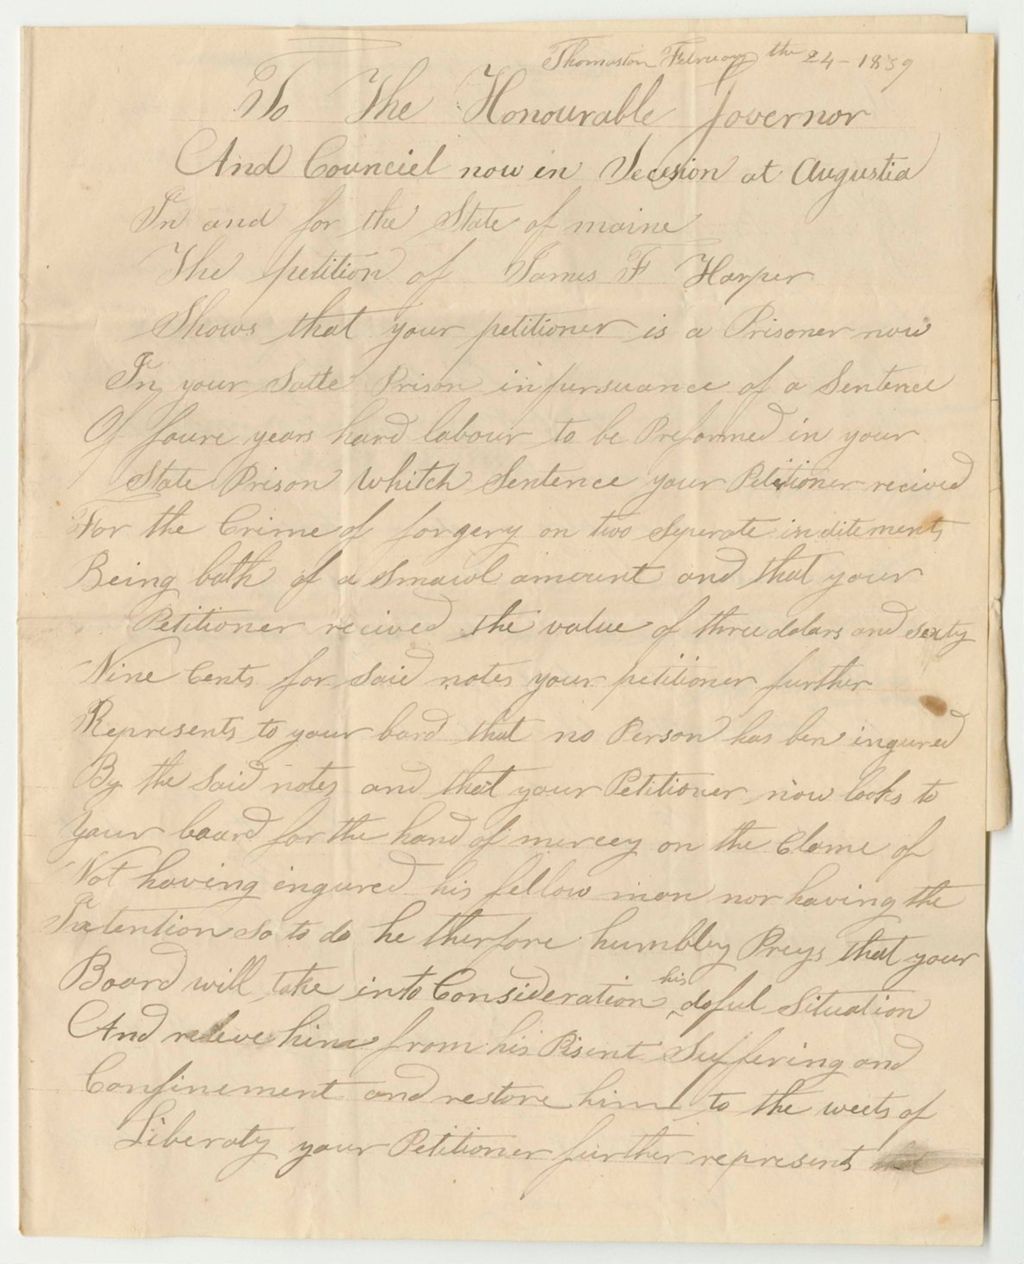 Thomaston February the 24 - 1839
To The Honourable Governor
And Counciel now in Secesion at Augustia
In and for the State of maine
The petition of James F Harper
Shows that your petitioner is a Prisoner now
In your Satte Prison in pursuance of a Sentence
Of foure years hard labour to be Preformed in your
State Prison Whitch Sentence your Petitioner recived
For the Crime of forgery on two Seperate inditements
Being bath of a Smawl amount and that your
Petitioner recived the value of three dolars and sexty
Nine Cents for Said notes your petitioner further
Represents to your bord that no Person has ben ingured
By the Said notes and that your Petitioner now looks to
Your board for the hand of mercey on the Clame of
Not having ingured his fellow man nor having the
Intention So to do he therfore humbley Preys that your
Board will take into Consideration his doful Situation
And releve him from his Prisent Suffering and
Confinement and restore him to the weets of
Liberaty your Petitioner further represents that